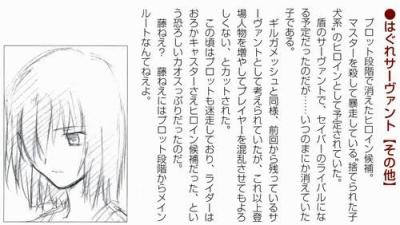 ●はぐれサーヴァント【その他】
プロット段階で消えたヒロイン候補。
マスターを殺して暴走している〝捨てられた子
犬系〟のヒロインとして予定されていた。
盾のサーヴァントで、セイバーのライバルにな
る予定だったのだが……いつのまにか消えていた
子である。
ギルガメッシュと同様、前回から残っているサ
ーヴァントとして考えられていたが、これ以上登
場人物を増やしてプレイヤーを混乱させてもよろ
しくない、とカットされた。
この頃はプロットも迷走しており、ライダーは
おろかキャスターさえヒロイン候補だった、とい
う恐ろしいカオスっぷりだったのだ。
藤ねえ？　藤ねえにはプロット段階からメイン
ルートなんてねえよ。